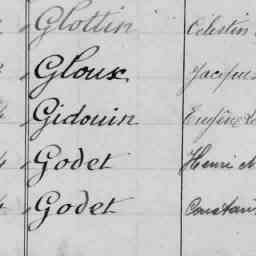 Glottin Célestin
Gloux Jacques
Gidouin Eugène
Godet Henri
Godet Constant